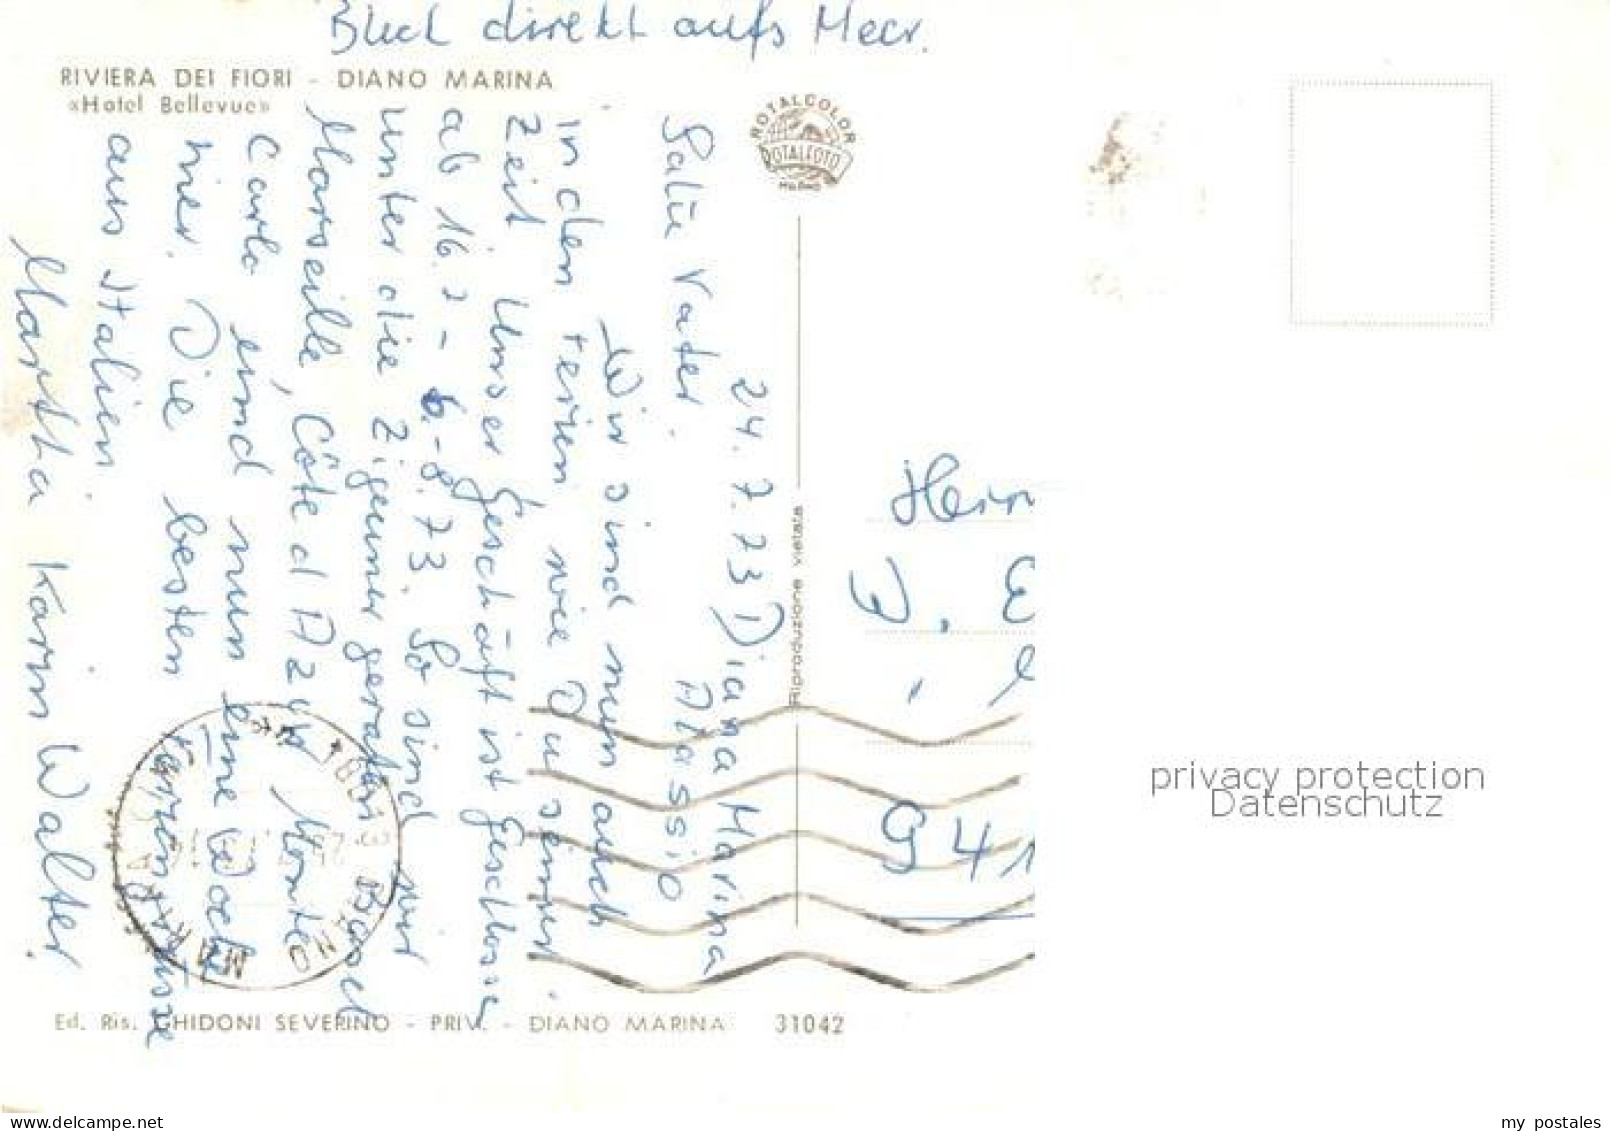 Blick direkt aufs Meer.
RIVIERA DEI FIORI - DIANO MARINA
«Hotel Bellevue»
ROTALCOLOR
ROTALFOTO
MILANO
24. 7. 73 Diana Marina
Alassio
Salü Vater.
Wir sind nun auch
in den Ferien wie Du seinerzeit
Zeit. Unser Geschäft ist geschlossen
ab 16. 7 - 6. 8. 73. So sind wir
unter die Zigeuner geraten Basel
Marseille, Côte d Azur, Monte
Carlo sind nun eine Woche
hier. Die besten Feriengrüsse
aus Italien.
Martha Karin Walter
Riproduzione vietata
Herr
9 4 1
DIANO MARINA
Ed. Ris. GHIDONI SEVERINO - PRIV. - DIANO MARINA 31042
privacy protection
Datenschutz
www.delcampe.net
my_postales